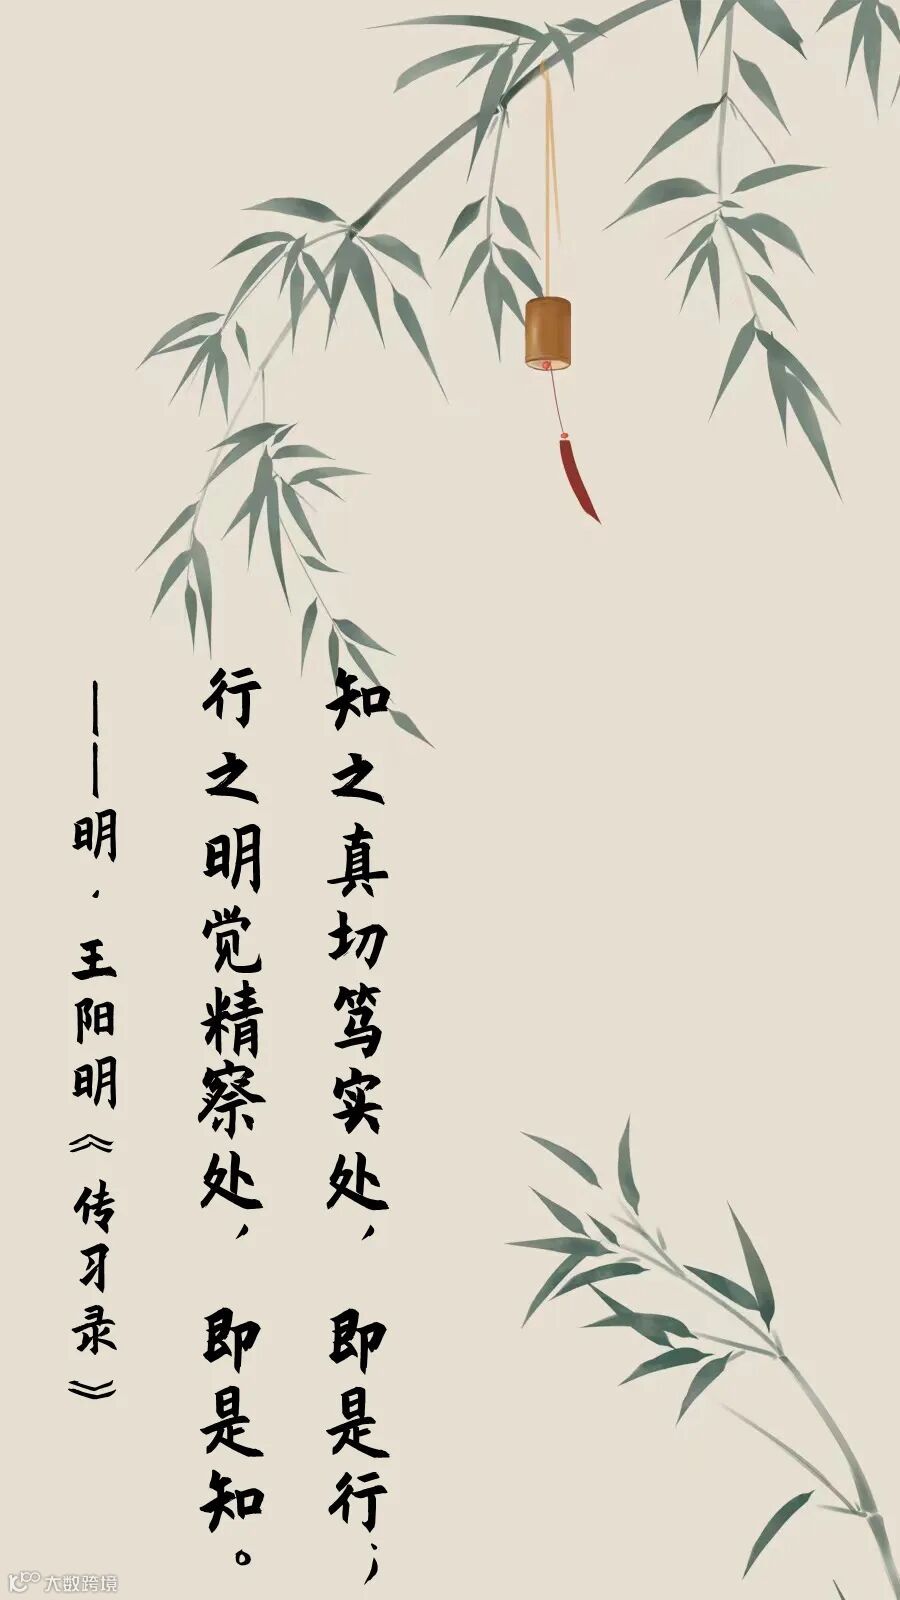 知之真切笃实处，即是行；
行之明觉精察处，即是知。
——明·王阳明《传习录》
大数跨境